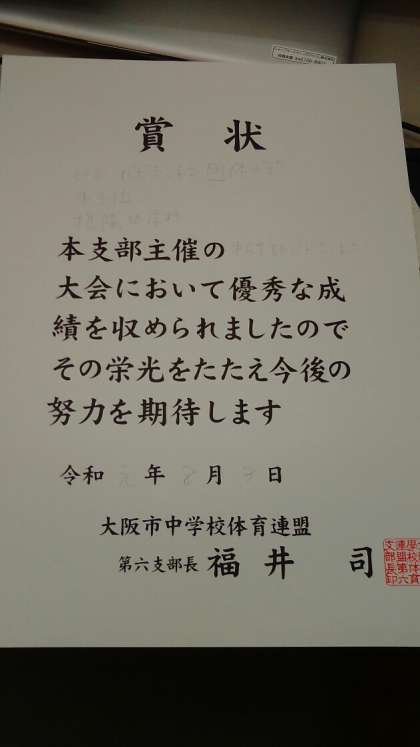 賞 状
本支部主催の
大会において優秀な成
績を収められましたので
その栄光をたたえ今後の
努力を期待します
令和 元 年 8 月 日
大阪市中学校体育連盟
第六支部長 福井 司